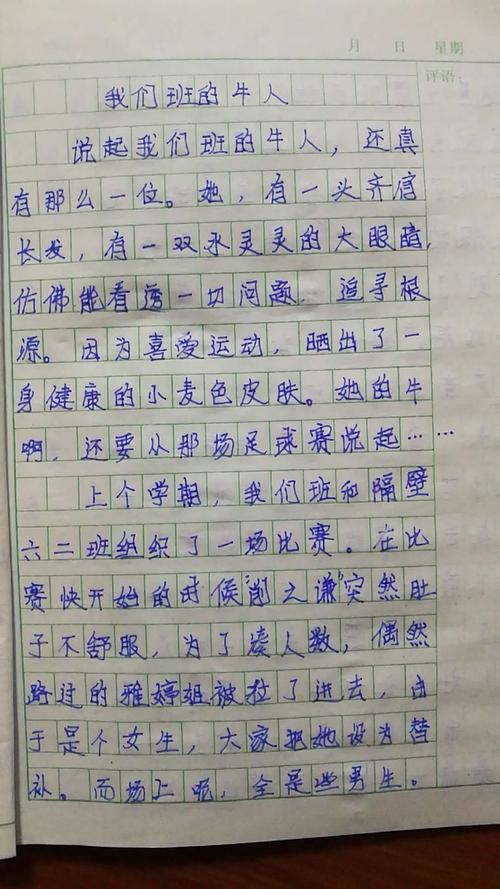 月 日 星期
评语:
我们班的牛人
说起我们班的牛人，还真
有那么一位。她，有一头齐肩
长发，有一双水灵灵的大眼睛，
仿佛能看透一切问题，追寻根
源。因为喜爱运动，晒出了一
身健康的小麦色皮肤。她的牛
啊，还要从那场足球赛说起……
上个学期，我们班和隔壁
六二班组织了一场比赛。在比
赛快开始的时候"削之谦"突然肚
子不舒服，为了凑人数，偶然
路过的雅婷姐被拉了进去，由
于是个女生，大家把她设为替
补。而场上呢，全是些男生。